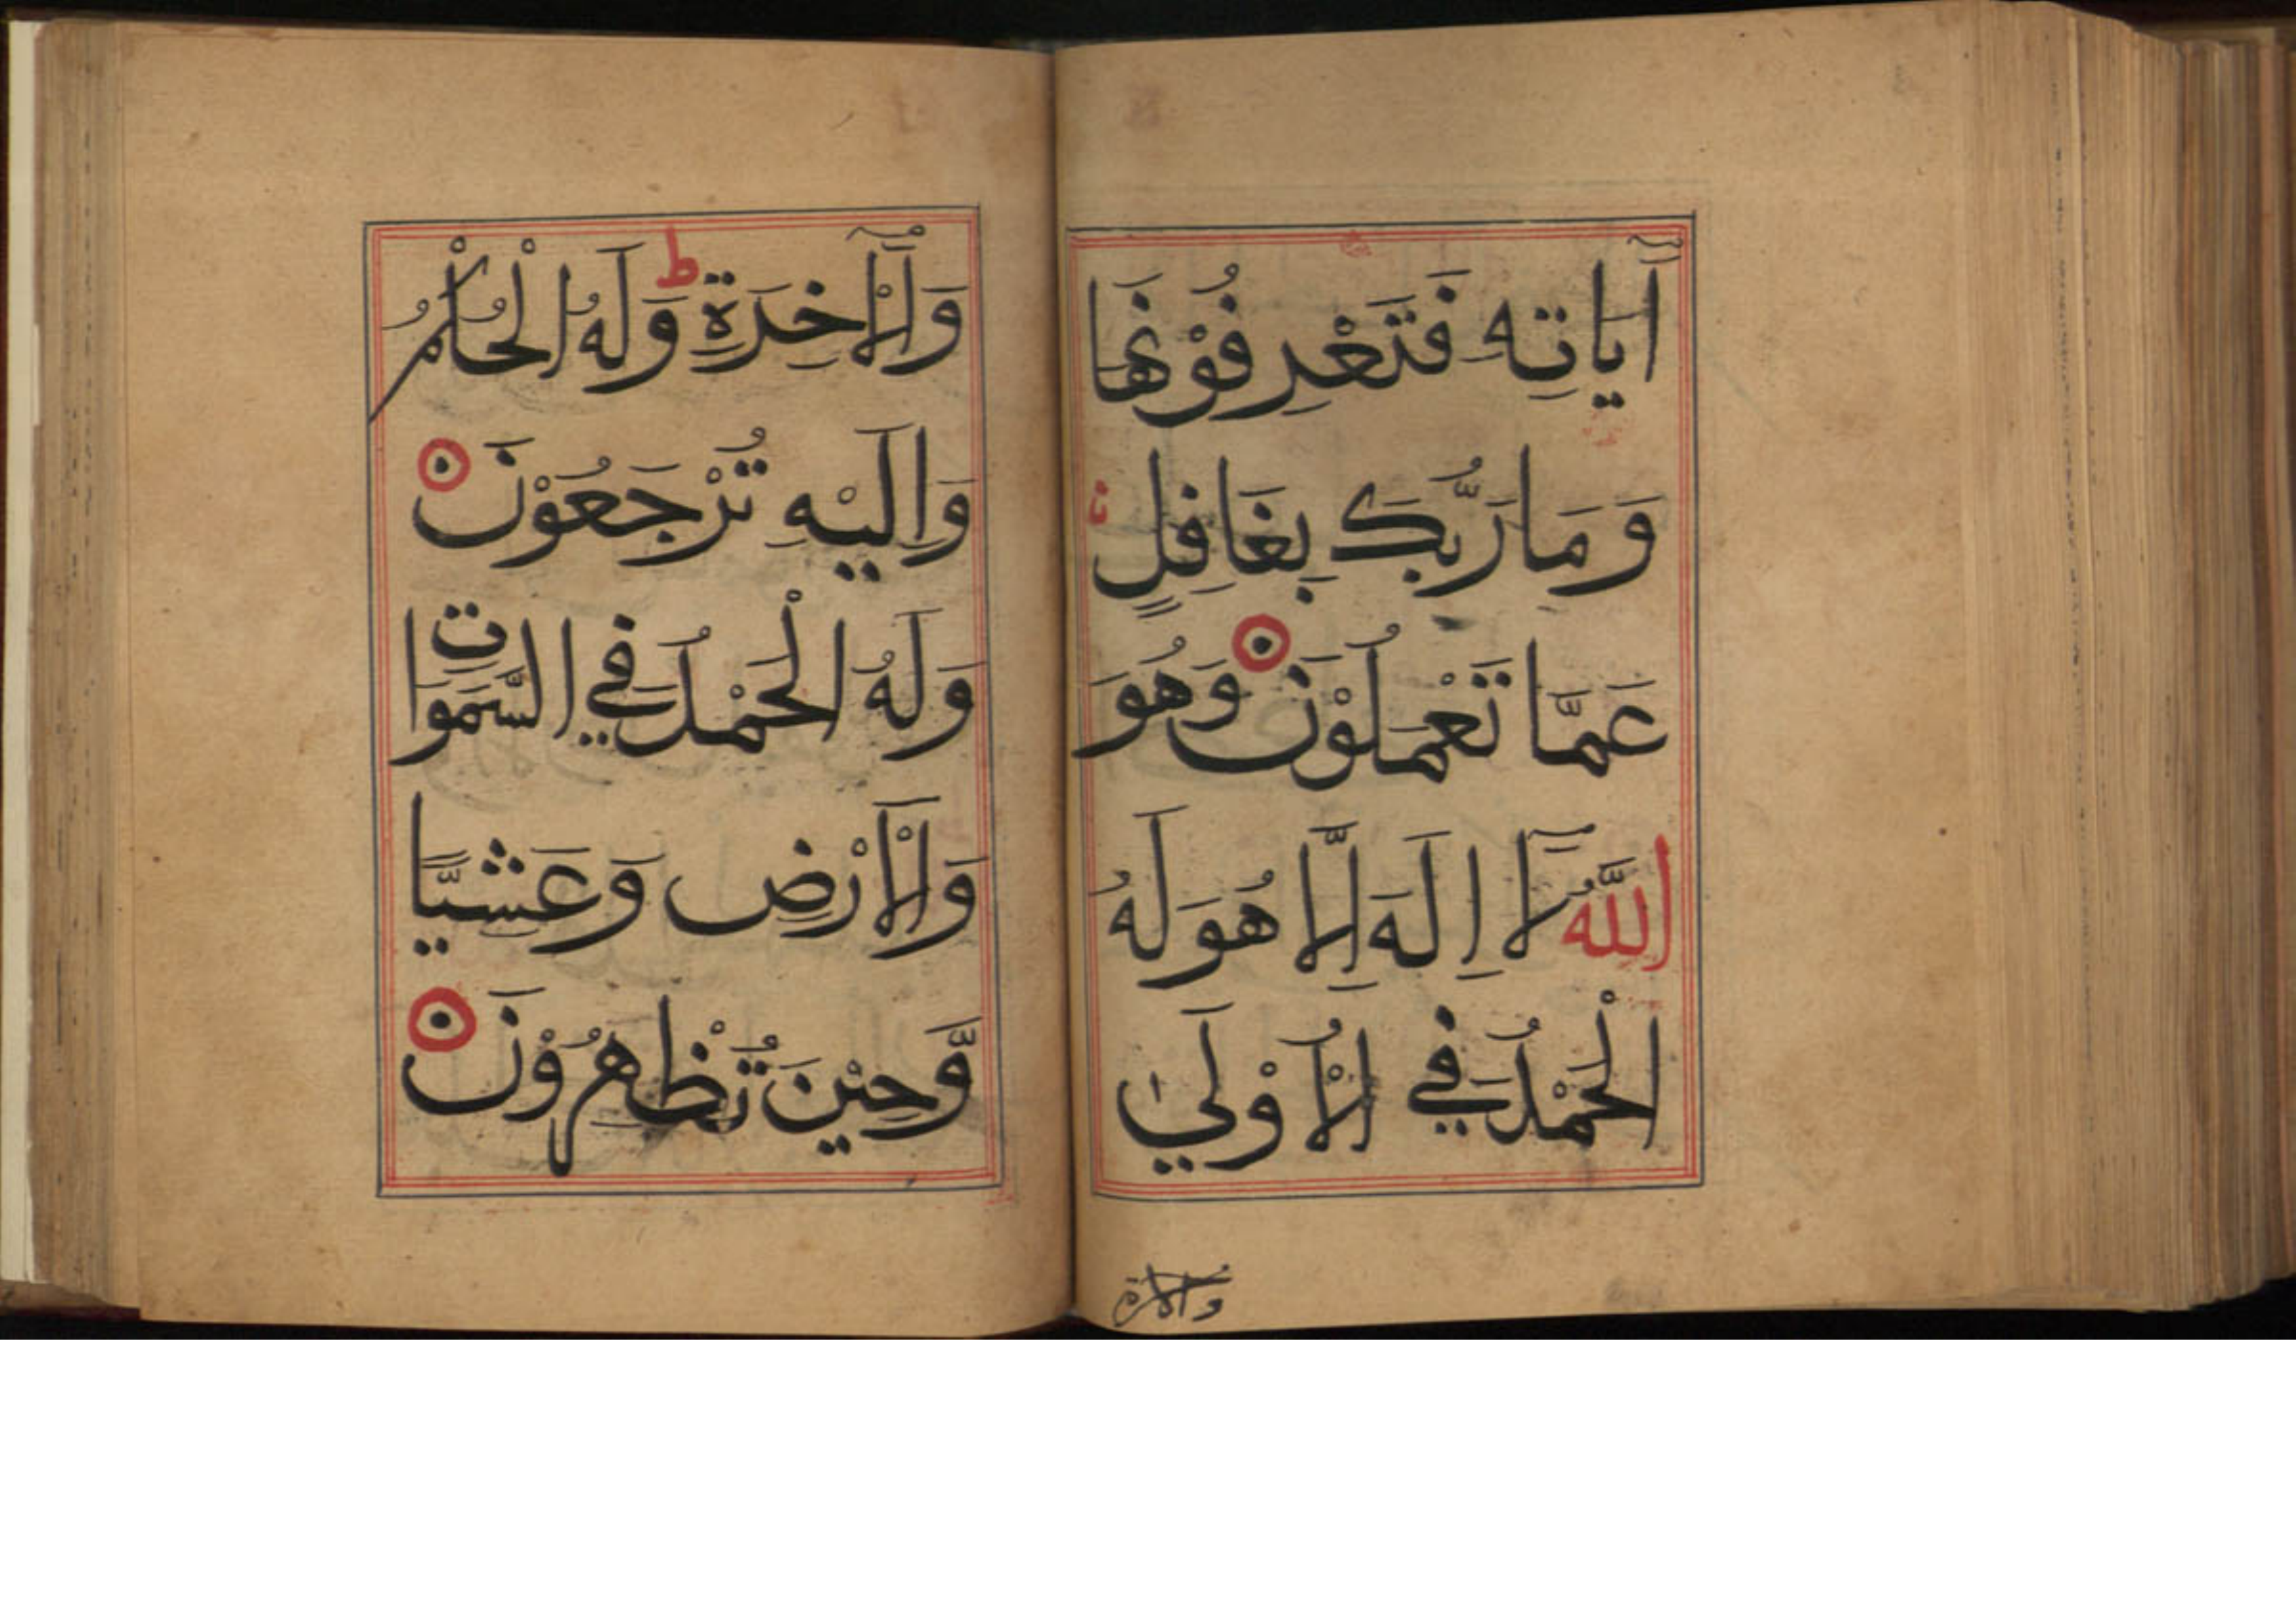 اٰيَاتِهٖ فَتَعْرِفُوْنَهَا
وَمَا رَبُّكَ بِغَافِلٍ
عَمَّا تَعْمَلُوْنَ وَهُوَ
اللَّهُ لَآ اِلَهَ اِلَّا هُوَ لَهُ
الْحَمْدُ فِي الْاُوْلَىٰ
وَالْآخِرَةِ ط وَلَهُ الْحُكْمُ
وَاِلَيْهِ تُرْجَعُوْنَ
وَلَهُ الْحَمْدُ فِي السَّمَوَاتِ
وَالْاَرْضِ وَعَشِيًّا
وَّحِيْنَ تُظْهِرُوْنَ